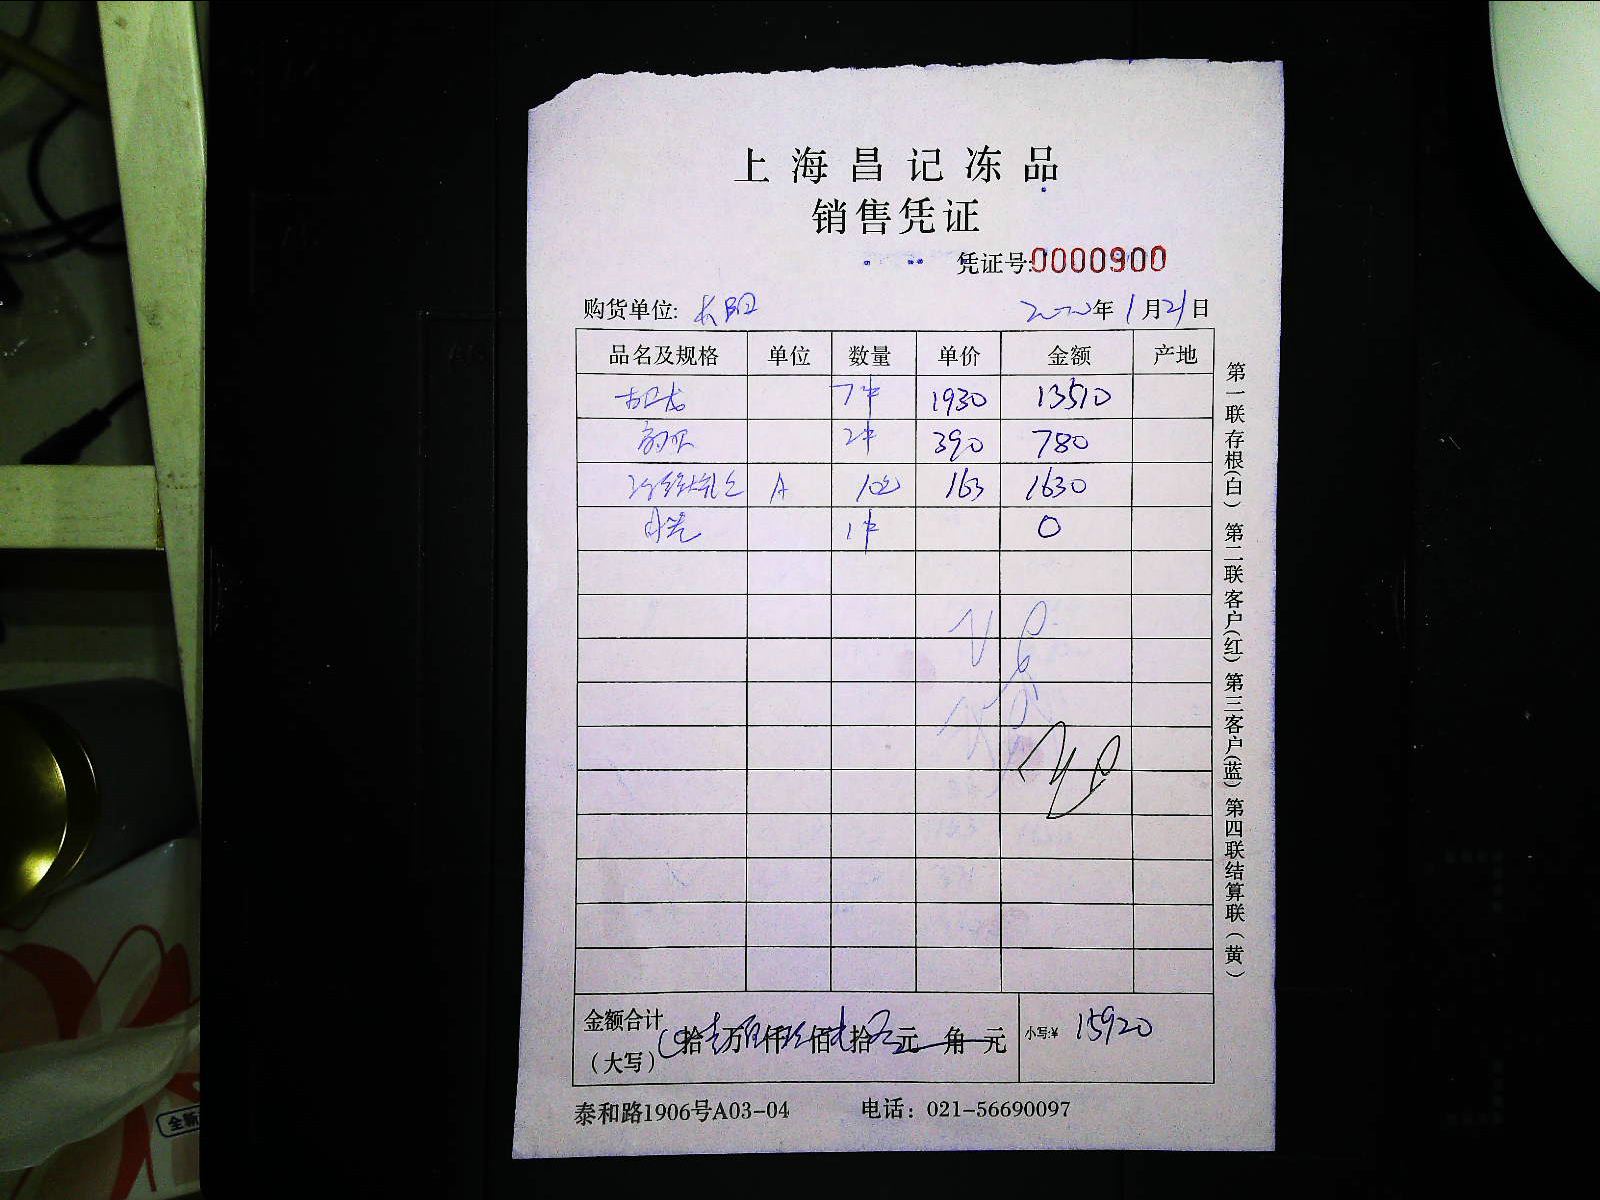 上海昌记冻品
销售凭证
凭证号:0000900
购货单位: 长阳 年1月21日
品名及规格 单位 数量 单价 金额 产地
7件 1930 13510
2件 390 780
A 10 163 1630
1件 0
金额合计 拾 万 仟 佰 拾 元 角 元 小写:¥ 15920
（大写）
泰和路1906号A03-04 电话：021-56690097
第一联存根(白) 第二联客户(红) 第三客户(蓝) 第四联结算联（黄）
全新